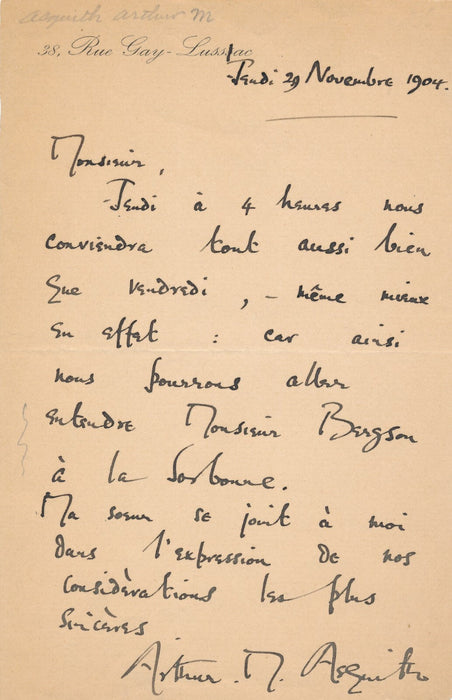 asquith arthur M
38, Rue Gay-Lussac
Jeudi 29 Novembre 1904.
Monsieur,
Jeudi à 4 heures nous
conviendra tout aussi bien
que vendredi, - même mieux
en effet : car ainsi
nous pourrons aller
entendre Monsieur Bergson
à la Sorbonne.
Ma soeur se joint à moi
dans l'expression de nos
considèrations les plus
sincères
Arthur. M. Asquith